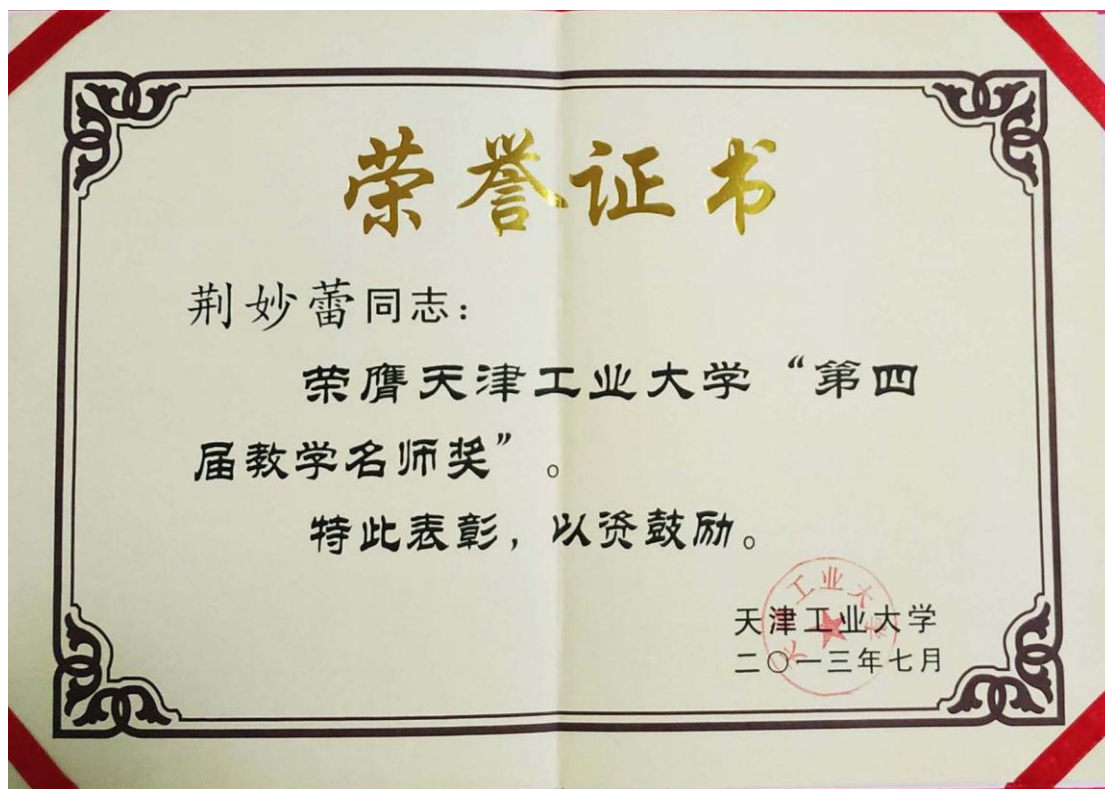 荣誉证书
荆妙蕾同志：
荣膺天津工业大学“第四
届教学名师奖”。
特此表彰，以资鼓励。
天津工业大学
天津工业大学
二〇一三年七月